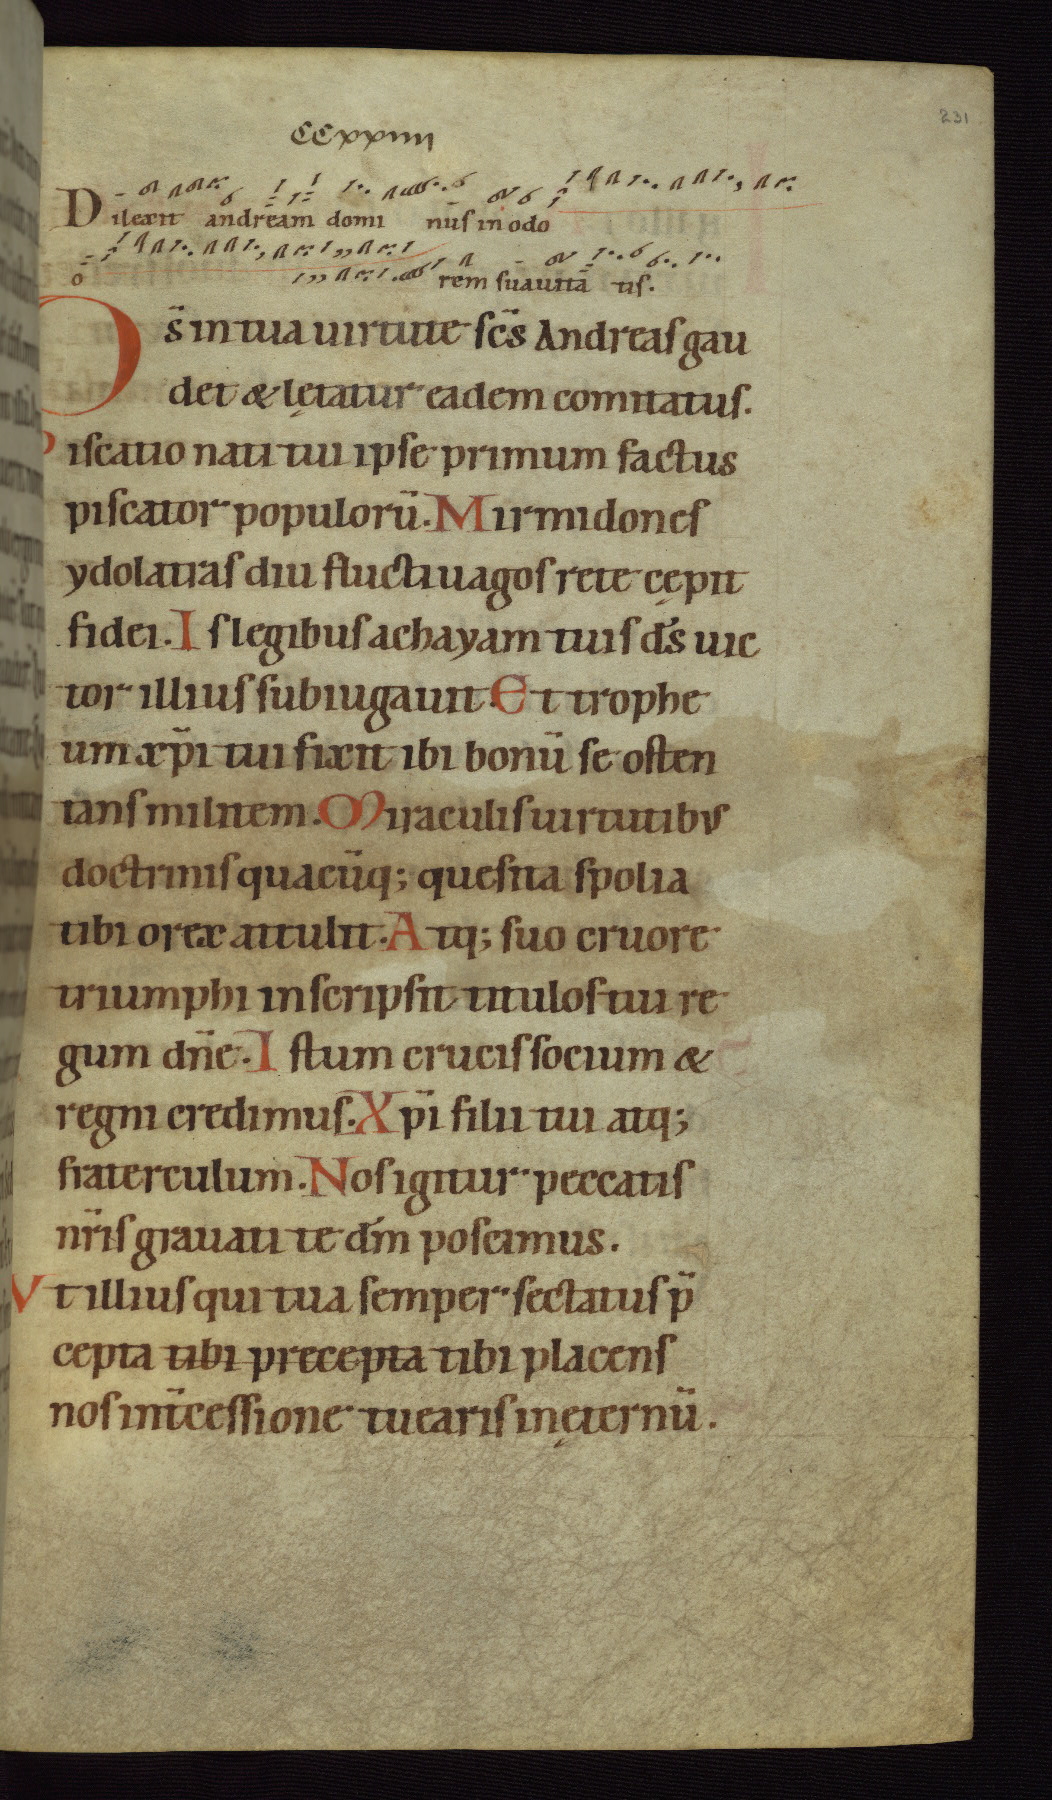 231
CCxxiiii
Dilexit andream domi nus in odo
o rem suauita tis.
Ds̄ in tua uirtute sc̄s Andreas gau
det & lętatur eadem comitatus.
Piscatio nati tui ipse primum factus
piscator populorū. Mirmidones
ydolatras diu fluctiuagos rete cępit
fidei. Is legibus achayam tuis d̄s uic
tor illius subiugauit. Et trophe
um xp̄i tui fixit ibi bonū se osten
tans militem. Miraculis uirtutibus
doctrinis quacūq; quesita spolia
tibi o rex attulit. Atq; suo cruore
triumphi inscripsit titulos tui re
gum dn̄e. Istum crucis socium &
regni credimus. Xp̄i filii tui atq;
fraterculum. Nos igitur peccatis
nr̄is grauati te dm̄ poscimus.
Vt illius qui tua semper sectatus p̄
cepta tibi precepta tibi placens
nos int̄cessione tuearis in ęternū.